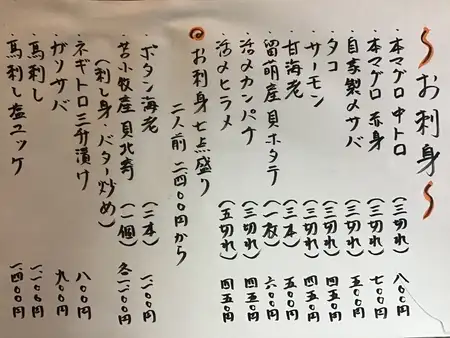 ～お刺身～
・本マグロ 中トロ (三切れ) 八〇〇円
・本マグロ 赤身 (三切れ) 七〇〇円
・自家製〆サバ (三切れ) 五〇〇円
・タコ (三切れ) 四五〇円
・サーモン (三切れ) 四五〇円
・甘海老 (三本) 五〇〇円
・留萌産貝ホタテ (一枚) 六〇〇円
・活〆カンパチ (三切れ) 四五〇円
・活〆ヒラメ (五切れ) 四五〇円
お刺身七点盛り
二人前 二四〇〇円から
・ボタン海老 (二本) 一、二〇〇円
・苫小牧産貝北寄 (一個) 各一、二〇〇円
(刺し身・バター炒め)
・ネギトロ三升漬け 八〇〇円
・ガツサバ 九〇〇円
・馬刺し 一、二〇〇円
・馬刺し塩ユッケ 一、四〇〇円